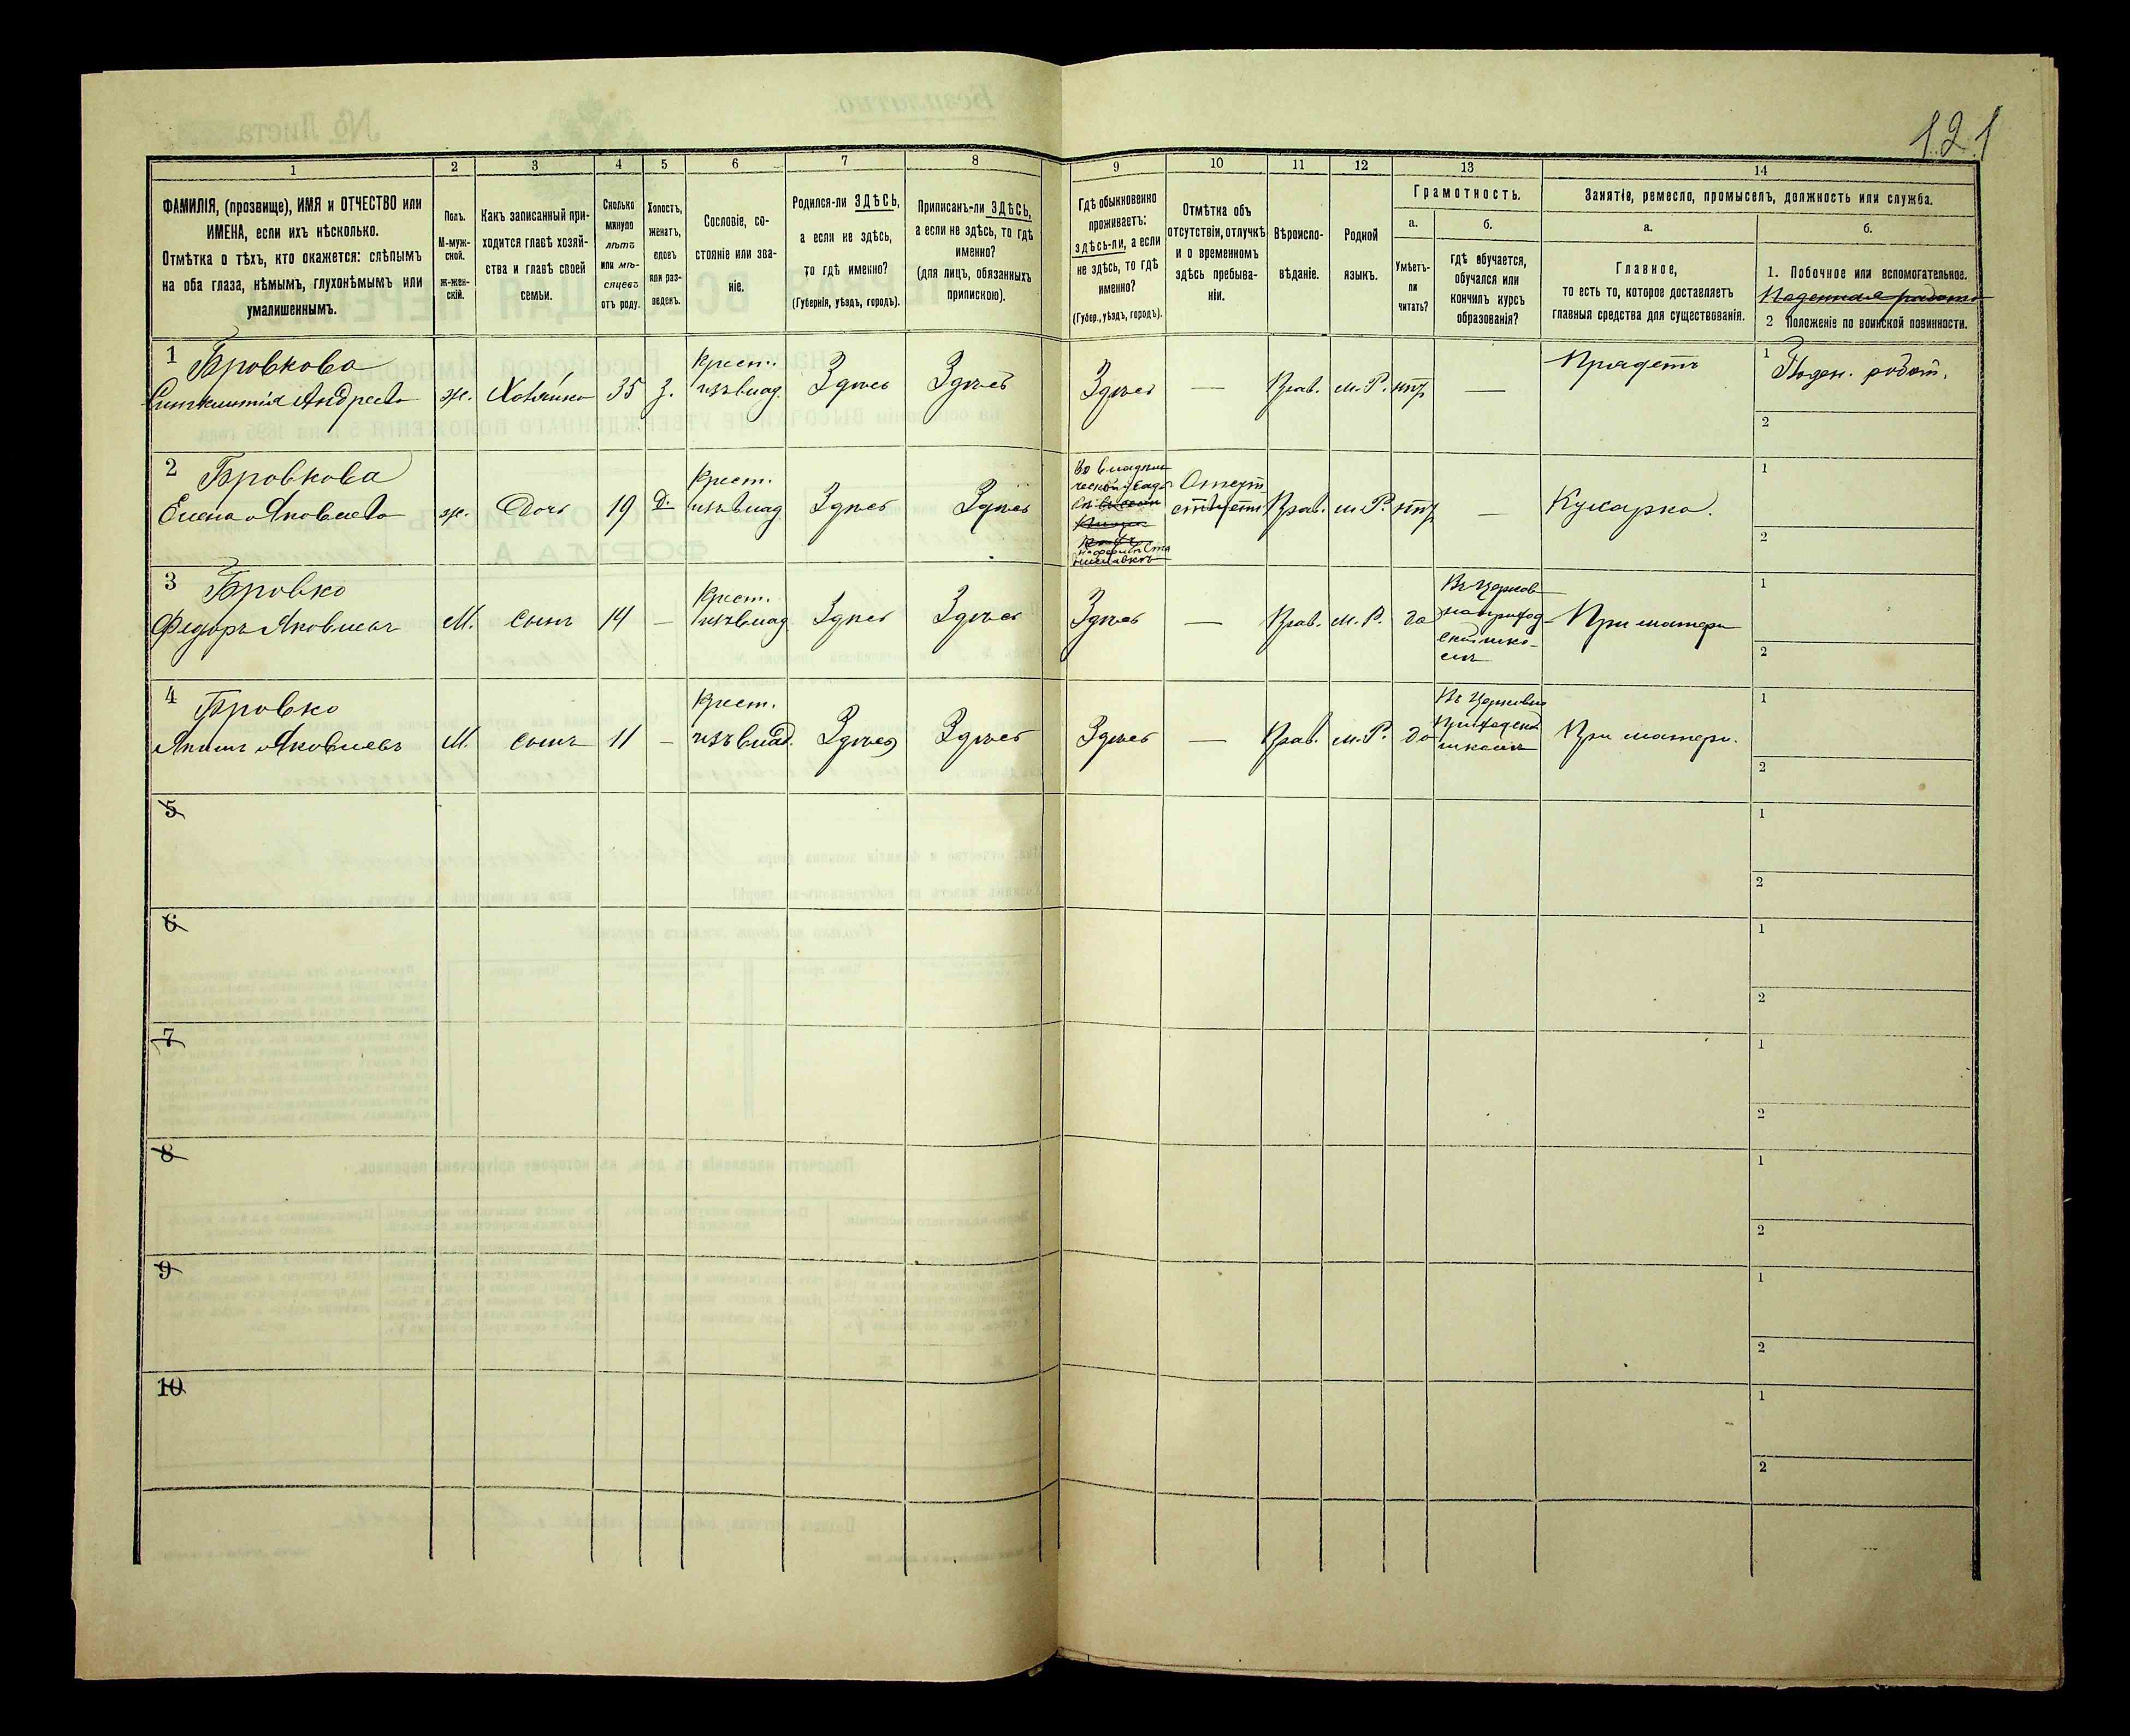 121
1 2 3 4 5 6 7 8 9 10 11 12 13 14
ФАМИЛІЯ, (прозвище), ИМЯ и ОТЧЕСТВО или
ИМЕНА, если ихъ нѣсколько.
Отмѣтка о тѣхъ, кто окажется: слѣпымъ
на оба глаза, нѣмымъ, глухонѣмымъ или
умалишеннымъ.
Полъ.
М-муж-
ской.
ж-жен-
скій.
Какъ записанный при-
ходится главѣ хозяй-
ства и главѣ своей
семьи.
Сколько
минуло
лѣтъ
или мѣ-
сяцевъ
отъ роду.
Холостъ,
женатъ,
вдовъ
или раз-
веденъ.
Сословіе, со-
стояніе или зва-
ніе.
Родился-ли ЗДѢСЬ,
а если не здѣсь,
то гдѣ именно?
(Губернія, уѣздъ, городъ).
Приписанъ-ли ЗДѢСЬ,
а если не здѣсь, то гдѣ
именно?
(для лицъ, обязанныхъ
припискою).
Гдѣ обыкновенно
проживаетъ:
здѣсь-ли, а если
не здѣсь, то гдѣ
именно?
(Губер., уѣздъ, городъ).
Отмѣтка объ
отсутствіи, отлучкѣ
и о временномъ
здѣсь пребыва-
ніи.
Вѣроиспо-
вѣданіе.
Родной
языкъ.
Грамотность.
а.
Умѣетъ-
ли
читать?
б.
гдѣ обучается,
обучался или
кончилъ курсъ
образованія?
Занятія, ремесло, промыселъ, должность или служба.
а.
Главное,
то есть то, которое доставляетъ
главныя средства для существованія.
б.
1. Побочное или вспомогательное.
Поденная работа
2 Положеніе по воинской повинности.
1 Бровкова
Синклитія Андреева ж. Хозяйка 35 З. Крест. изъ влад. Здѣсь Здѣсь Здѣсь — Прав. м. Р. нѣт — Прядетъ 1 Поден. работ.
2
2 Бровкова
Елена Яковлева ж. Дочь 19 Д. Крест. изъ влад. Здѣсь Здѣсь
Отсут
ствует Прав. м. Р. нѣт — Кухарка. 1
2
3 Бровко
Федоръ Яковлевъ М. сынъ 14 — Крест. изъ влад. Здѣсь Здѣсь Здѣсь — Прав. м. Р. да
Въ церков
но приход
ской шко-
лѣ
При матери 1
2
4 Бровко
Яковлевъ М. сынъ 11 — Крест. изъ влад. Здѣсь Здѣсь Здѣсь — Прав. м. Р. да
Въ Церковно
Приходской
школѣ
При матери. 1
2
5 1
2
6 1
2
7 1
2
8 1
2
9 1
2
10 1
2